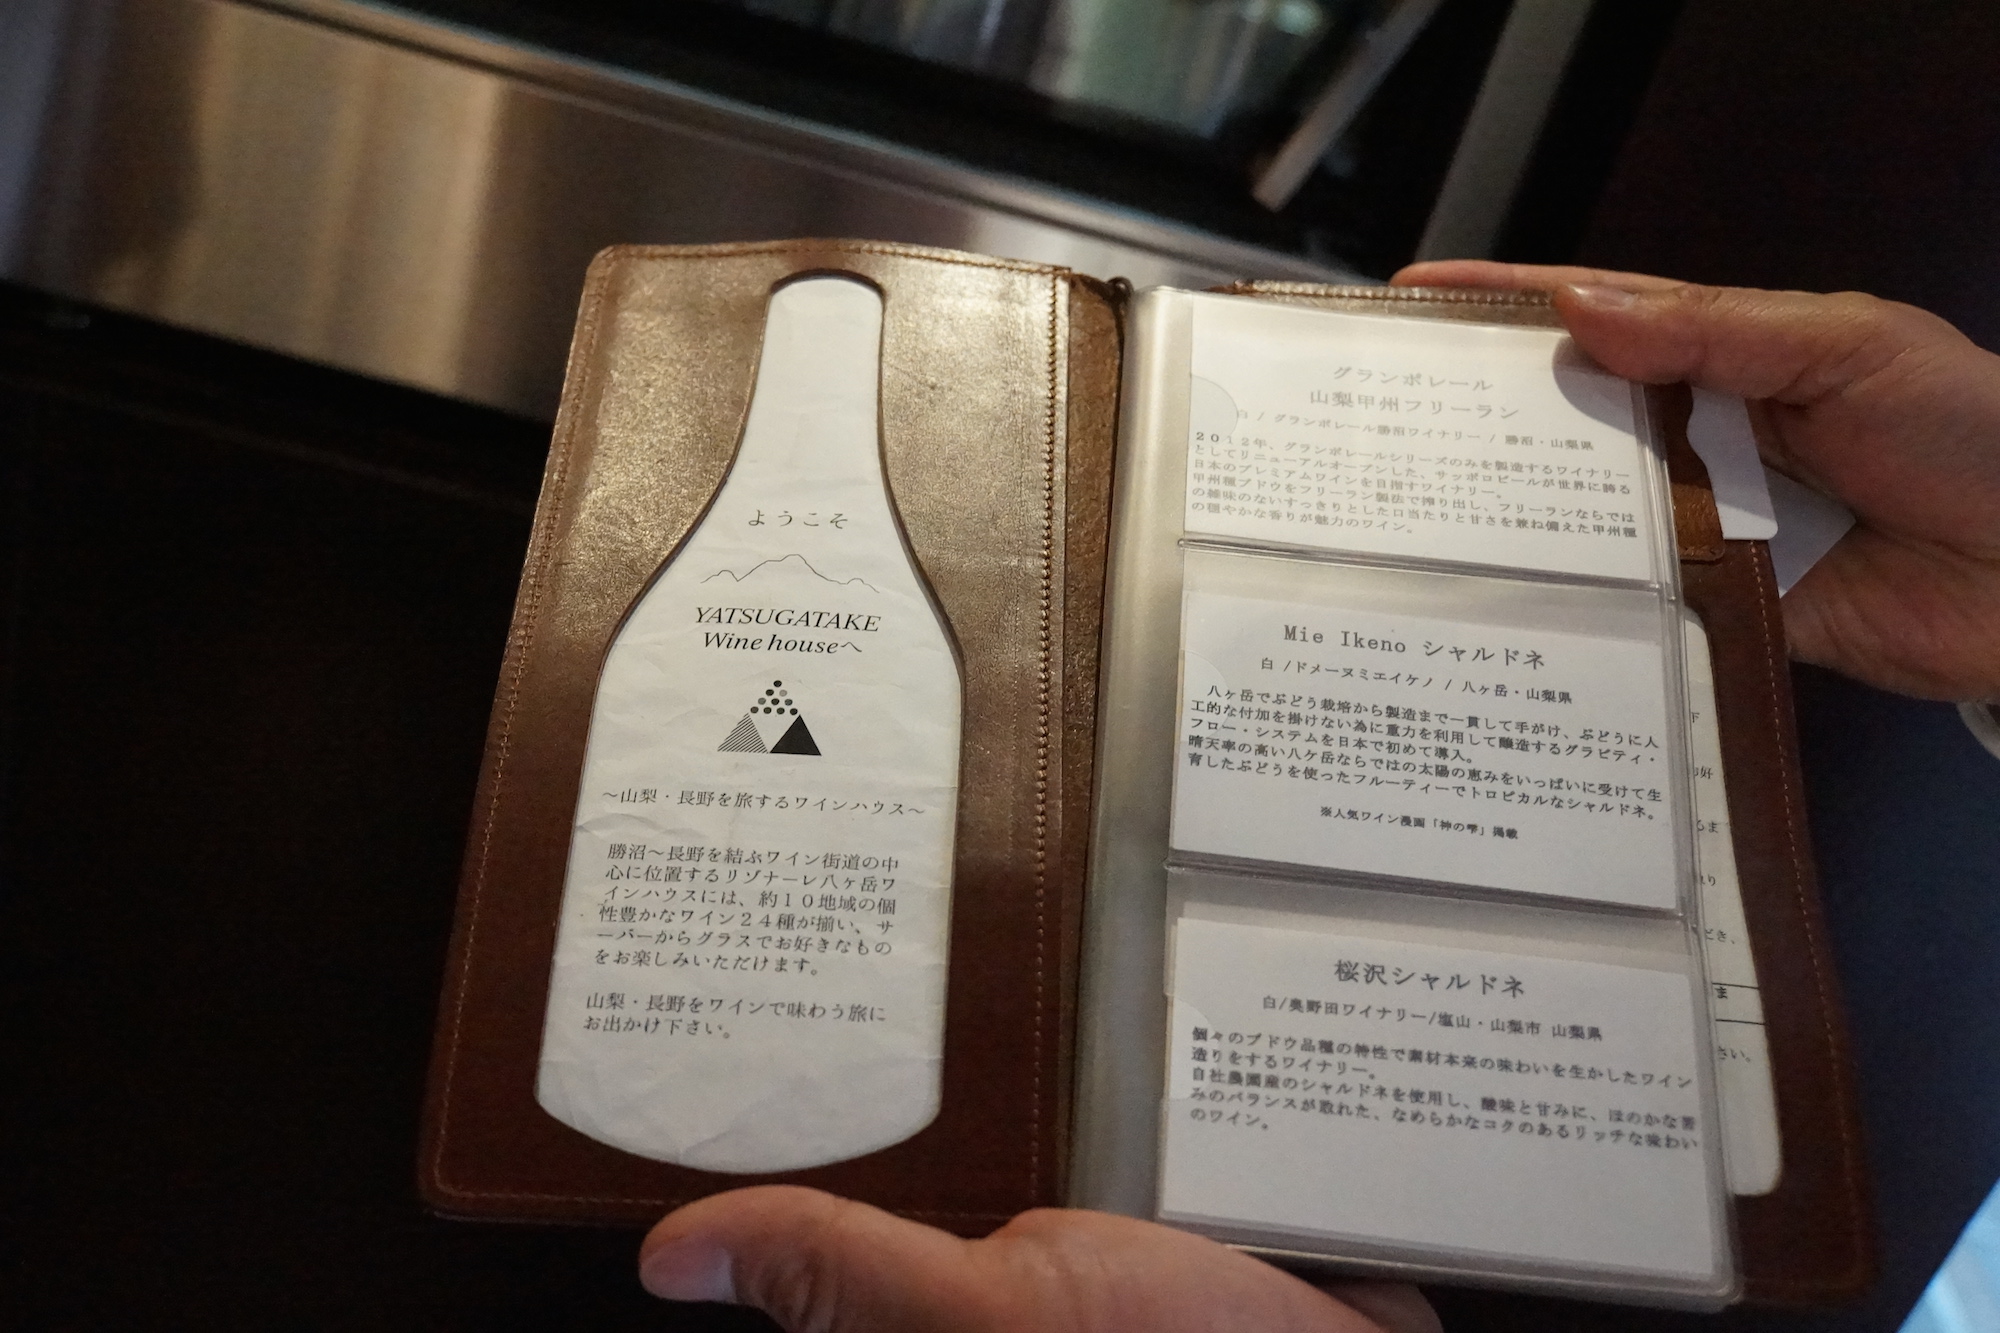 ようこそ
YATSUGATAKE
Wine houseへ
～山梨・長野を旅するワインハウス～
勝沼～長野を結ぶワイン街道の中
心に位置するリゾナーレ八ヶ岳ワ
インハウスには、約１０地域の個
性豊かなワイン２４種が揃い、サ
ーバーからグラスでお好きなもの
をお楽しみいただけます。
山梨・長野をワインで味わう旅に
お出かけ下さい。
グランポレール
山梨甲州フリーラン
白 / グランポレール勝沼ワイナリー / 勝沼・山梨県
2012年、グランポレールシリーズのみを製造するワイナリー
としてリニューアルオープンした、サッポロビールが世界に誇る
日本のプレミアムワインを目指すワイナリー。
甲州種ブドウをフリーラン製法で搾り出し、フリーランならでは
の雑味のないすっきりとした口当たりと甘さを兼ね備えた甲州種
の穏やかな香りが魅力のワイン。
Mie Ikeno シャルドネ
白 /ドメーヌミエイケノ / 八ヶ岳・山梨県
八ヶ岳でぶどう栽培から製造まで一貫して手がけ、ぶどうに人
工的な付加を掛けない為に重力を利用して醸造するグラビティ・
フロー・システムを日本で初めて導入。
晴天率の高い八ケ岳ならではの太陽の恵みをいっぱいに受けて生
育したぶどうを使ったフルーティーでトロピカルなシャルドネ。
※人気ワイン漫画「神の雫」掲載
桜沢シャルドネ
白/奥野田ワイナリー/塩山・山梨市 山梨県
個々のブドウ品種の特性で素材本来の味わいを生かしたワイン
造りをするワイナリー。
自社農園産のシャルドネを使用し、酸味と甘みに、ほのかな苦
みのバランスが取れた、なめらかなコクのあるリッチな味わい
のワイン。